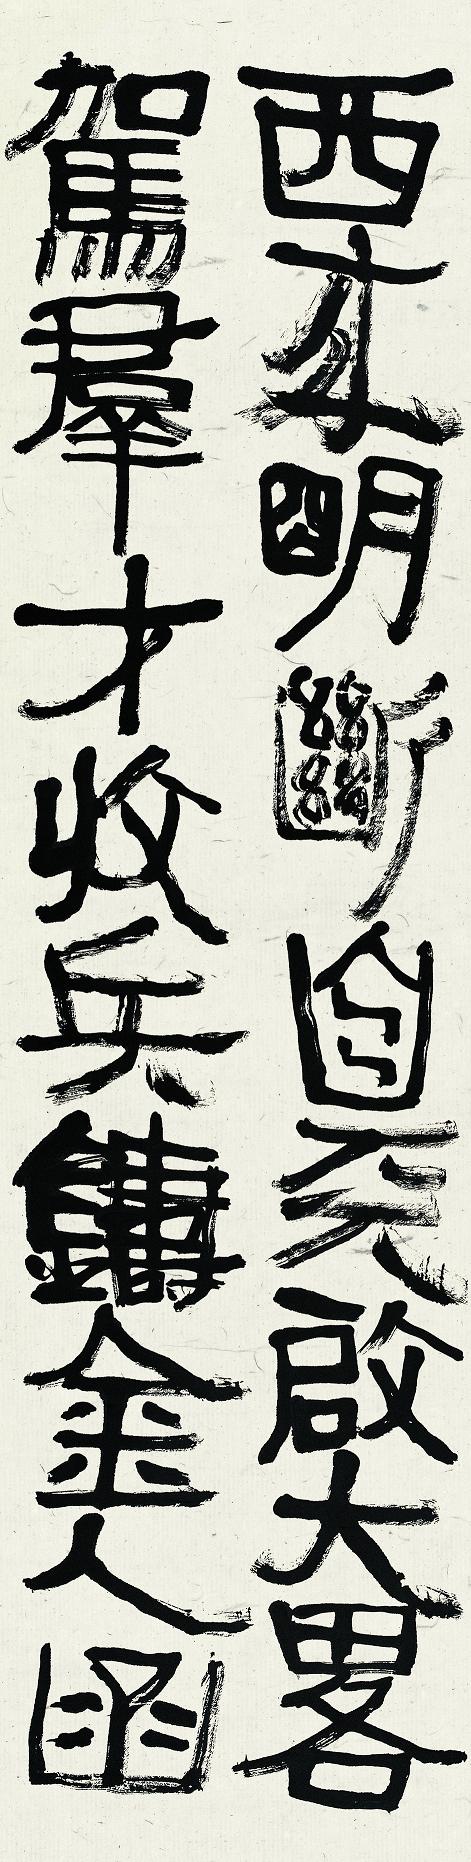 西來明斷自天啟大畧
駕羣才收兵鑄金人函